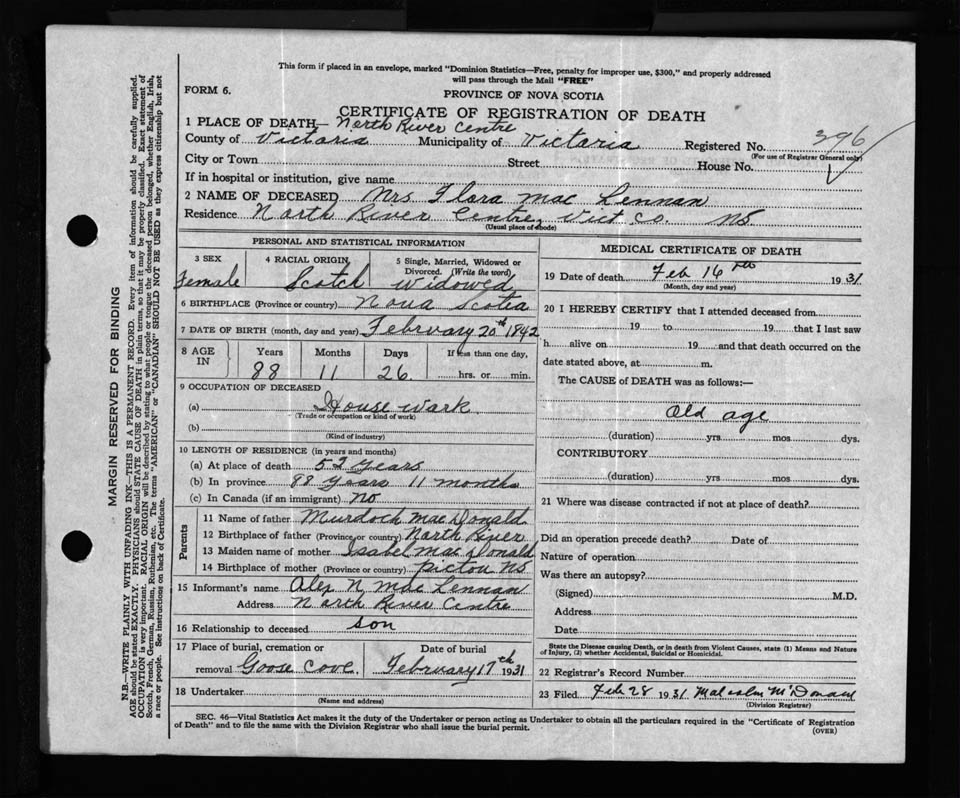 This form if placed in an envelope, marked "Dominion Statistics—Free, penalty for improper use, $300," and properly addressed
will pass through the Mail "FREE"
FORM 6.
PROVINCE OF NOVA SCOTIA
CERTIFICATE OF REGISTRATION OF DEATH
1 PLACE OF DEATH— North River Centre
County of Victoria Municipality of Victoria Registered No. 396
(For use of Registrar General only)
City or Town Street House No.
If in hospital or institution, give name
2 NAME OF DECEASED Mrs. Flora Mac Lennan
Residence North River Centre, Vict Co. NS
(Usual place of abode)
PERSONAL AND STATISTICAL INFORMATION
3 SEX Female
4 RACIAL ORIGIN Scotch
5 Single, Married, Widowed or Divorced. (Write the word) Widowed
6 BIRTHPLACE (Province or country) Nova Scotia
7 DATE OF BIRTH (month, day and year) February 20th 1842
8 AGE IN Years 88 Months 11 Days 26 If less than one day, hrs. or min.
9 OCCUPATION OF DECEASED
(a) House wark
(Trade or occupation or kind of work)
(b)
(Kind of industry)
10 LENGTH OF RESIDENCE (in years and months)
(a) At place of death 52 years
(b) In province 88 years 11 months
(c) In Canada (if an immigrant) no
Parents
11 Name of father Murdoch Mac Donald
12 Birthplace of father (Province or country) North River
13 Maiden name of mother Isabel Mac Donald
14 Birthplace of mother (Province or country) Pictou NS
15 Informant's name Alex N Mac Lennan
Address North River Centre
16 Relationship to deceased son
17 Place of burial, cremation or removal Goose Cove Date of burial February 17th 1931
18 Undertaker
(Name and address)
MEDICAL CERTIFICATE OF DEATH
19 Date of death Feb 16th 1931
(Month, day and year)
20 I HEREBY CERTIFY that I attended deceased from
19 to 19 that I last saw
h alive on 19 and that death occurred on the
date stated above, at m.
The CAUSE of DEATH was as follows:—
Old age
(duration) yrs mos dys.
CONTRIBUTORY
(duration) yrs. mos. dys.
21 Where was disease contracted if not at place of death?
Did an operation precede death? Date of
Nature of operation
Was there an autopsy?
(Signed) M.D.
Address
Date
State the Disease causing Death, or in death from Violent Causes, state (1) Means and Nature
of Injury, (2) whether Accidental, Suicidal or Homicidal.
22 Registrar's Record Number
23 Filed Feb 28 1931 Malcolm McDonald
(Division Registrar)
SEC. 46—Vital Statistics Act makes it the duty of the Undertaker or person acting as Undertaker to obtain all the particulars required in the "Certificate of Registration
of Death" and to file the same with the Division Registrar who shall issue the burial permit.
(OVER)
MARGIN RESERVED FOR BINDING
N.B.—WRITE PLAINLY WITH UNFADING INK—THIS IS A PERMANENT RECORD. Every item of information should be carefully supplied.
AGE should be stated EXACTLY. PHYSICIANS should STATE CAUSE OF DEATH in plain terms, so that it may be properly classified. Exact statement of
OCCUPATION is very important. RACIAL ORIGIN will be described by stating to what people or tongue the deceased person belonged, whether English, Irish,
Scotch, French, German, Russian, Ruthenian, etc. The terms "AMERICAN" or "CANADIAN" SHOULD NOT BE USED as they express citizenship but not
a race or people. See instructions on back of Certificate.